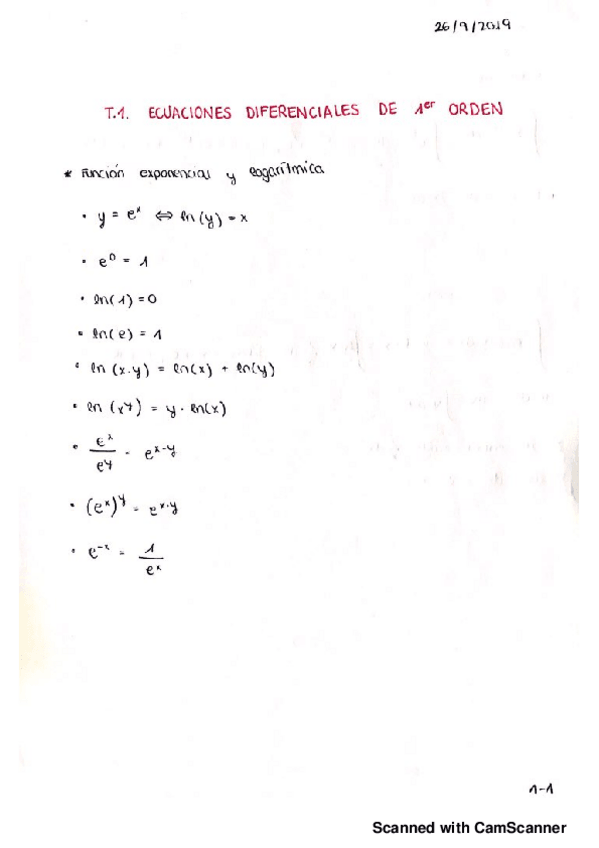 26/9/2019
T.1. ECUACIONES DIFERENCIALES DE 1er ORDEN
* Función exponencial y logarítmica
• y = e^x ⇔ ln(y) = x
• e^0 = 1
• ln(1) = 0
• ln(e) = 1
• ln (x·y) = ln(x) + ln(y)
• ln (x^y) = y · ln(x)
• e^x / e^y = e^x-y
• (e^x)^y = e^x·y
• e^-x = 1 / e^x
1-1
Scanned with CamScanner